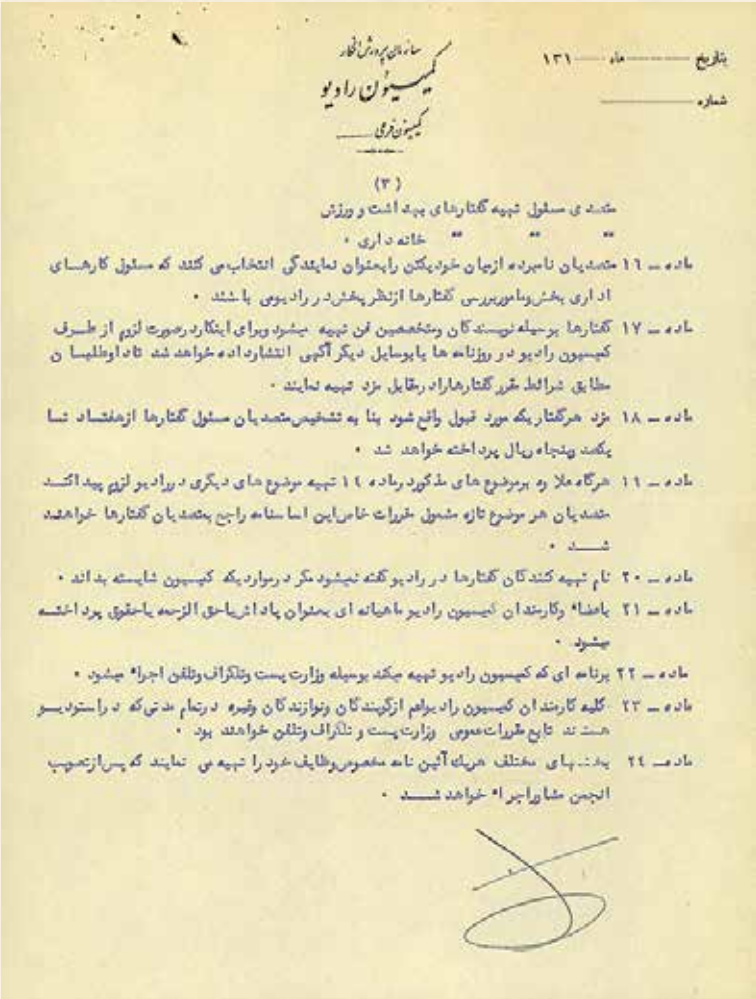 سازمان پرورش افکار
کمیسیون رادیو
کمیسیون فرعی
بتاریخ ماه ۱۳۱
شماره
(۳)
متصدی مسئول تهیه گفتارهای بهداشت و ورزش
" " " خانه داری .
ماده ــ ۱٦ متصدیان نامبرده ازمیان خودیکتن رابعنوان نمایندگی انتخاب می کنند که مسئول کارهای
اداری بخش ومامور بررسی گفتارها ازنظر پخش در رادیو می باشند .
ماده ــ ۱۷ گفتارها بوسیله نویسندگان ومتخصصین فن تهیه میشود وبرای اینکار درصورت لزوم از طرف
کمیسیون رادیو در روزنامه ها یا بوسایل دیگر آگهی انتشار داده خواهد شد تا داوطلبان
مطابق شرائط مقرر گفتارها را در مقابل مزد تهیه نمایند .
ماده ــ ۱۸ مزد هر گفتاریکه مورد قبول واقع شود بنا به تشخیص متصدیان مسئول گفتارها از هفتاد تا
یکصد وپنجاه ریال پرداخته خواهد شد .
ماده ــ ۱۹ هرگاه علاوه برموضوع های مذکور درماده ۱٤ تهیه موضوع های دیگری در رادیو لزوم پیدا کند
متصدیان هر موضوع تازه مشمول مقررات خاص این اساسنامه راجع بمتصدیان گفتارها خواهند
شد .
ماده ــ ۲۰ نام تهیه کنندگان گفتارها در رادیو گفته نمیشود مگر در مواردیکه کمیسیون شایسته بداند .
ماده ــ ۲۱ باعضاء وکارمندان کمیسیون رادیو ماهیانه ای بعنوان پاداش یا حق الزحمه یا حقوق پرداخته
میشود .
ماده ــ ۲۲ برنامه ای که کمیسیون رادیو تهیه میکند بوسیله وزارت پست وتلگراف وتلفن اجراء میشود .
ماده ــ ۲۳ کلیه کارمندان کمیسیون رادیو اعم ازگویندگان ونوازندگان وغیره درتمام مدتی که در استودیو
هستند تابع مقررات عمومی وزارت پست و تلگراف وتلفن خواهند بود .
ماده ــ ۲٤ بخشهای مختلف هریك آئین نامه مخصوص وظایف خود را تهیه می نمایند که پس از تصویب
انجمن مشاور اجراء خواهد شد .